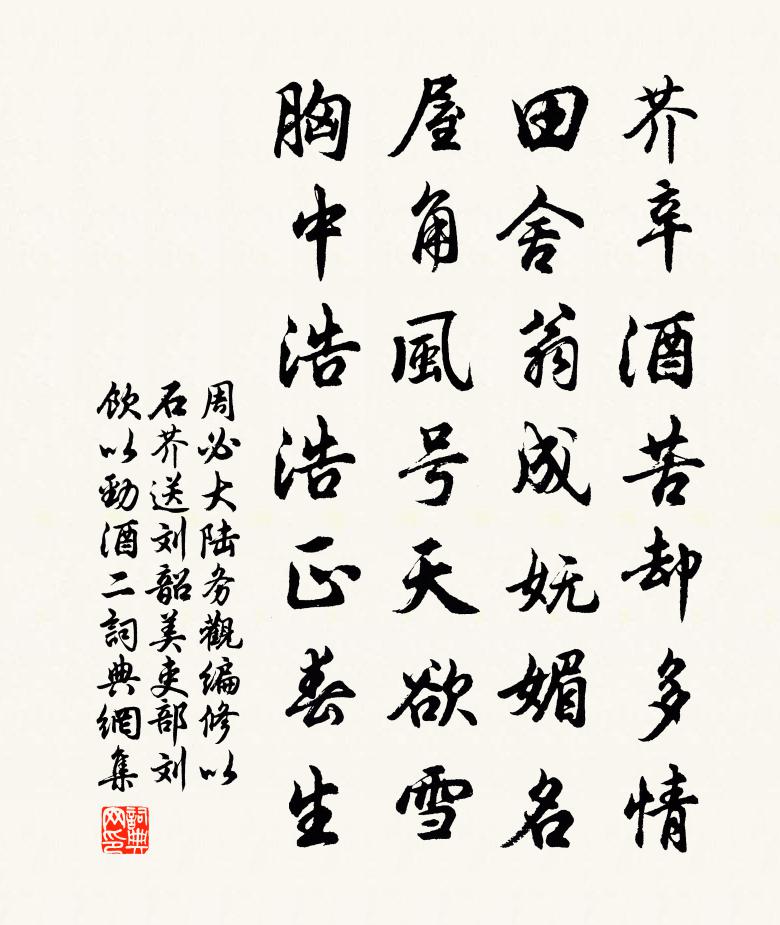 芥辛酒苦却多情
田舍翁成妩媚名
屋角風号天欲雪
胸中浩浩正春生
周必大陆务觀编修以
石芥送刘韶美吏部刘
飲以勁酒二詞典網集
詞典網印